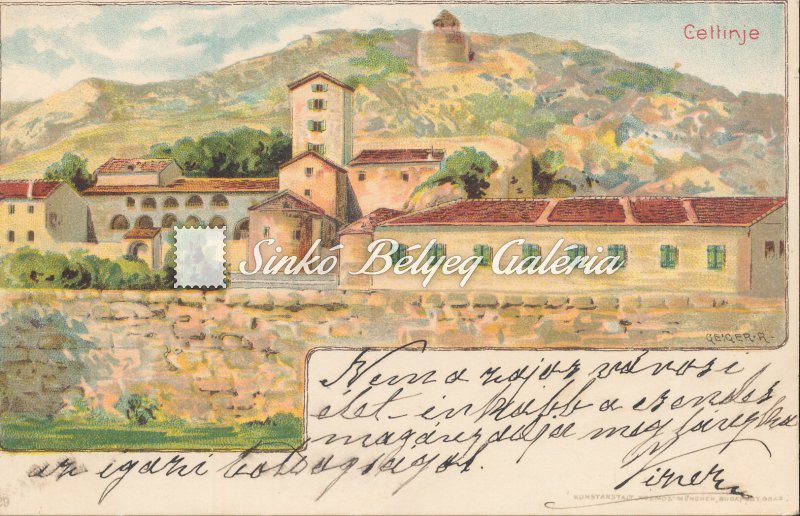 Cettinje
Sinkó Bélyeg Galéria
GEIGER. R.
Nem a zajos városi
élet – inkább a csendes
magány adja meg
az igazi boldogságot.
KUNSTANSTALT KOSMOS MÜNCHEN, BUDAPEST, GRAZ.